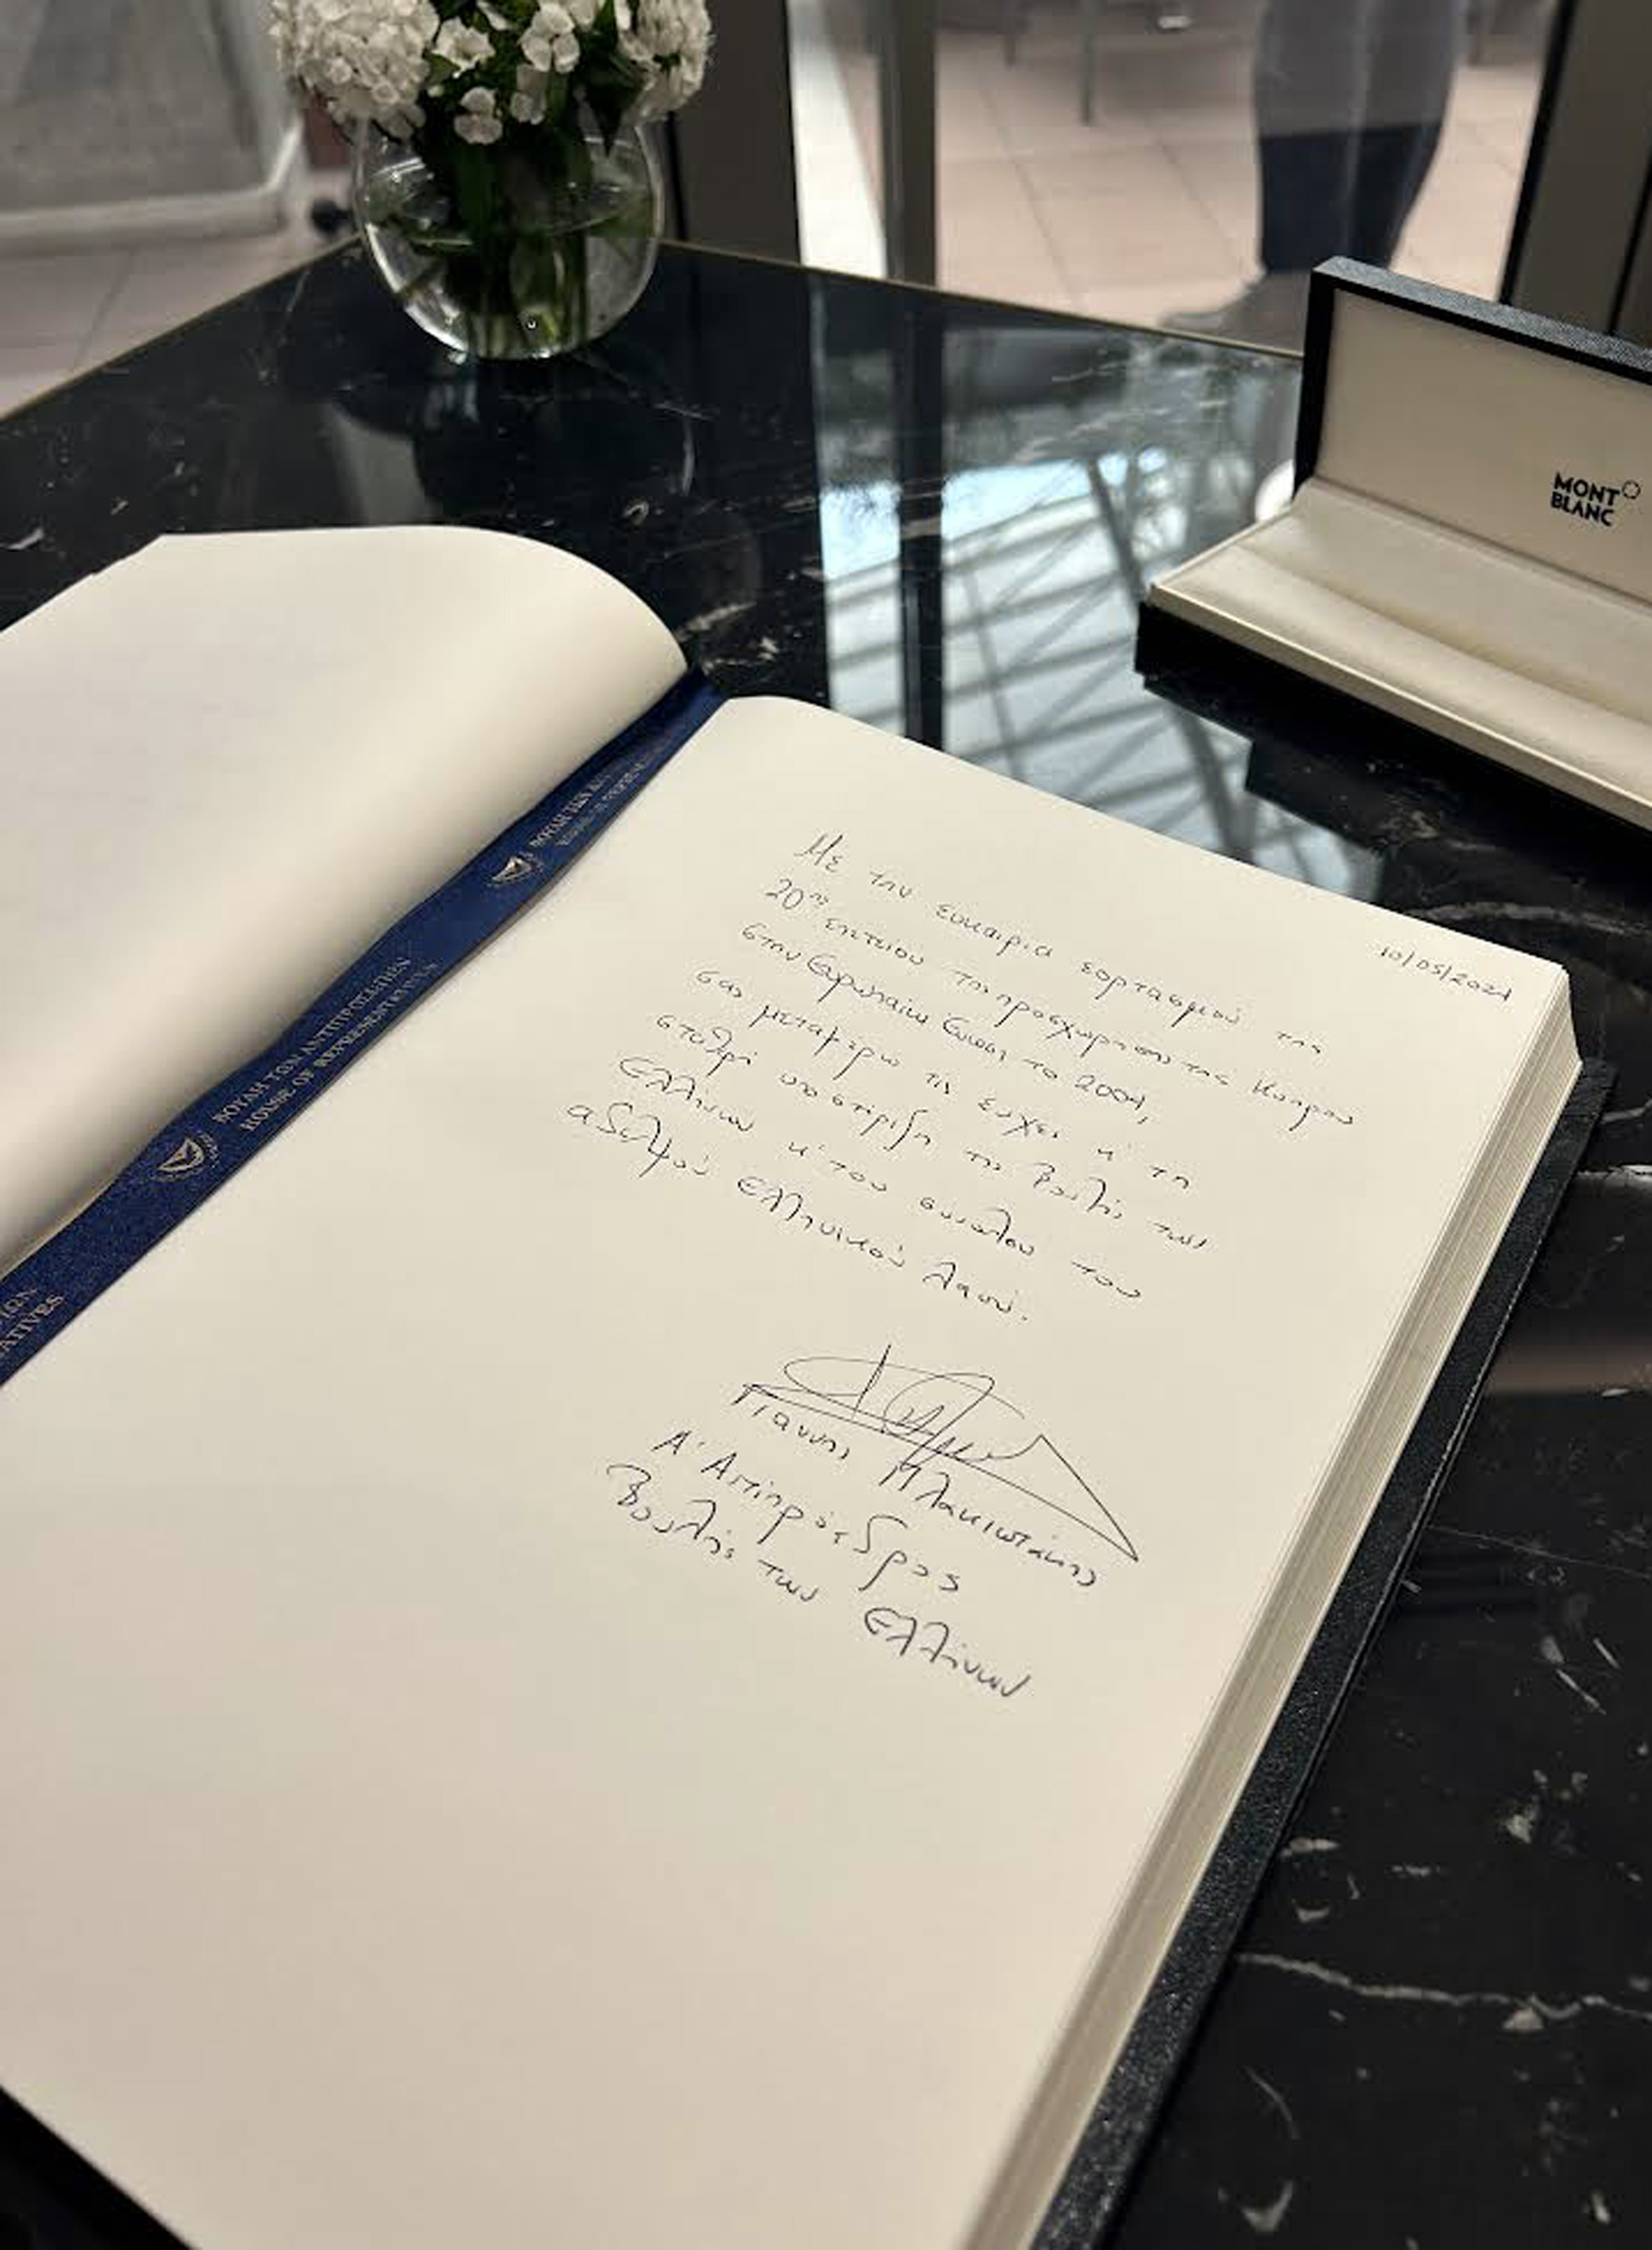 MONT
BLANC
ΒΟΥΛΗ ΤΩΝ
ΒΟΥΛΗ ΤΩΝ ΑΝΤΙΠΡΟΣΩΠΩΝ
HOUSE OF REPRESENTATIVES
10/05/2024
Με την ευκαιρία εορτασμού της
20ης επετείου της προσχώρησης της Κύπρου
στην Ευρωπαϊκή Ένωση το 2004,
σας μεταφέρω τις ευχές κ' τη
σταθερή υποστήριξη της Βουλής των
Ελλήνων κ' του συνόλου του
αδελφού Ελληνικού λαού.
Γιάννης Πλακιωτάκης
Α' Αντιπρόεδρος
Βουλής των Ελλήνων